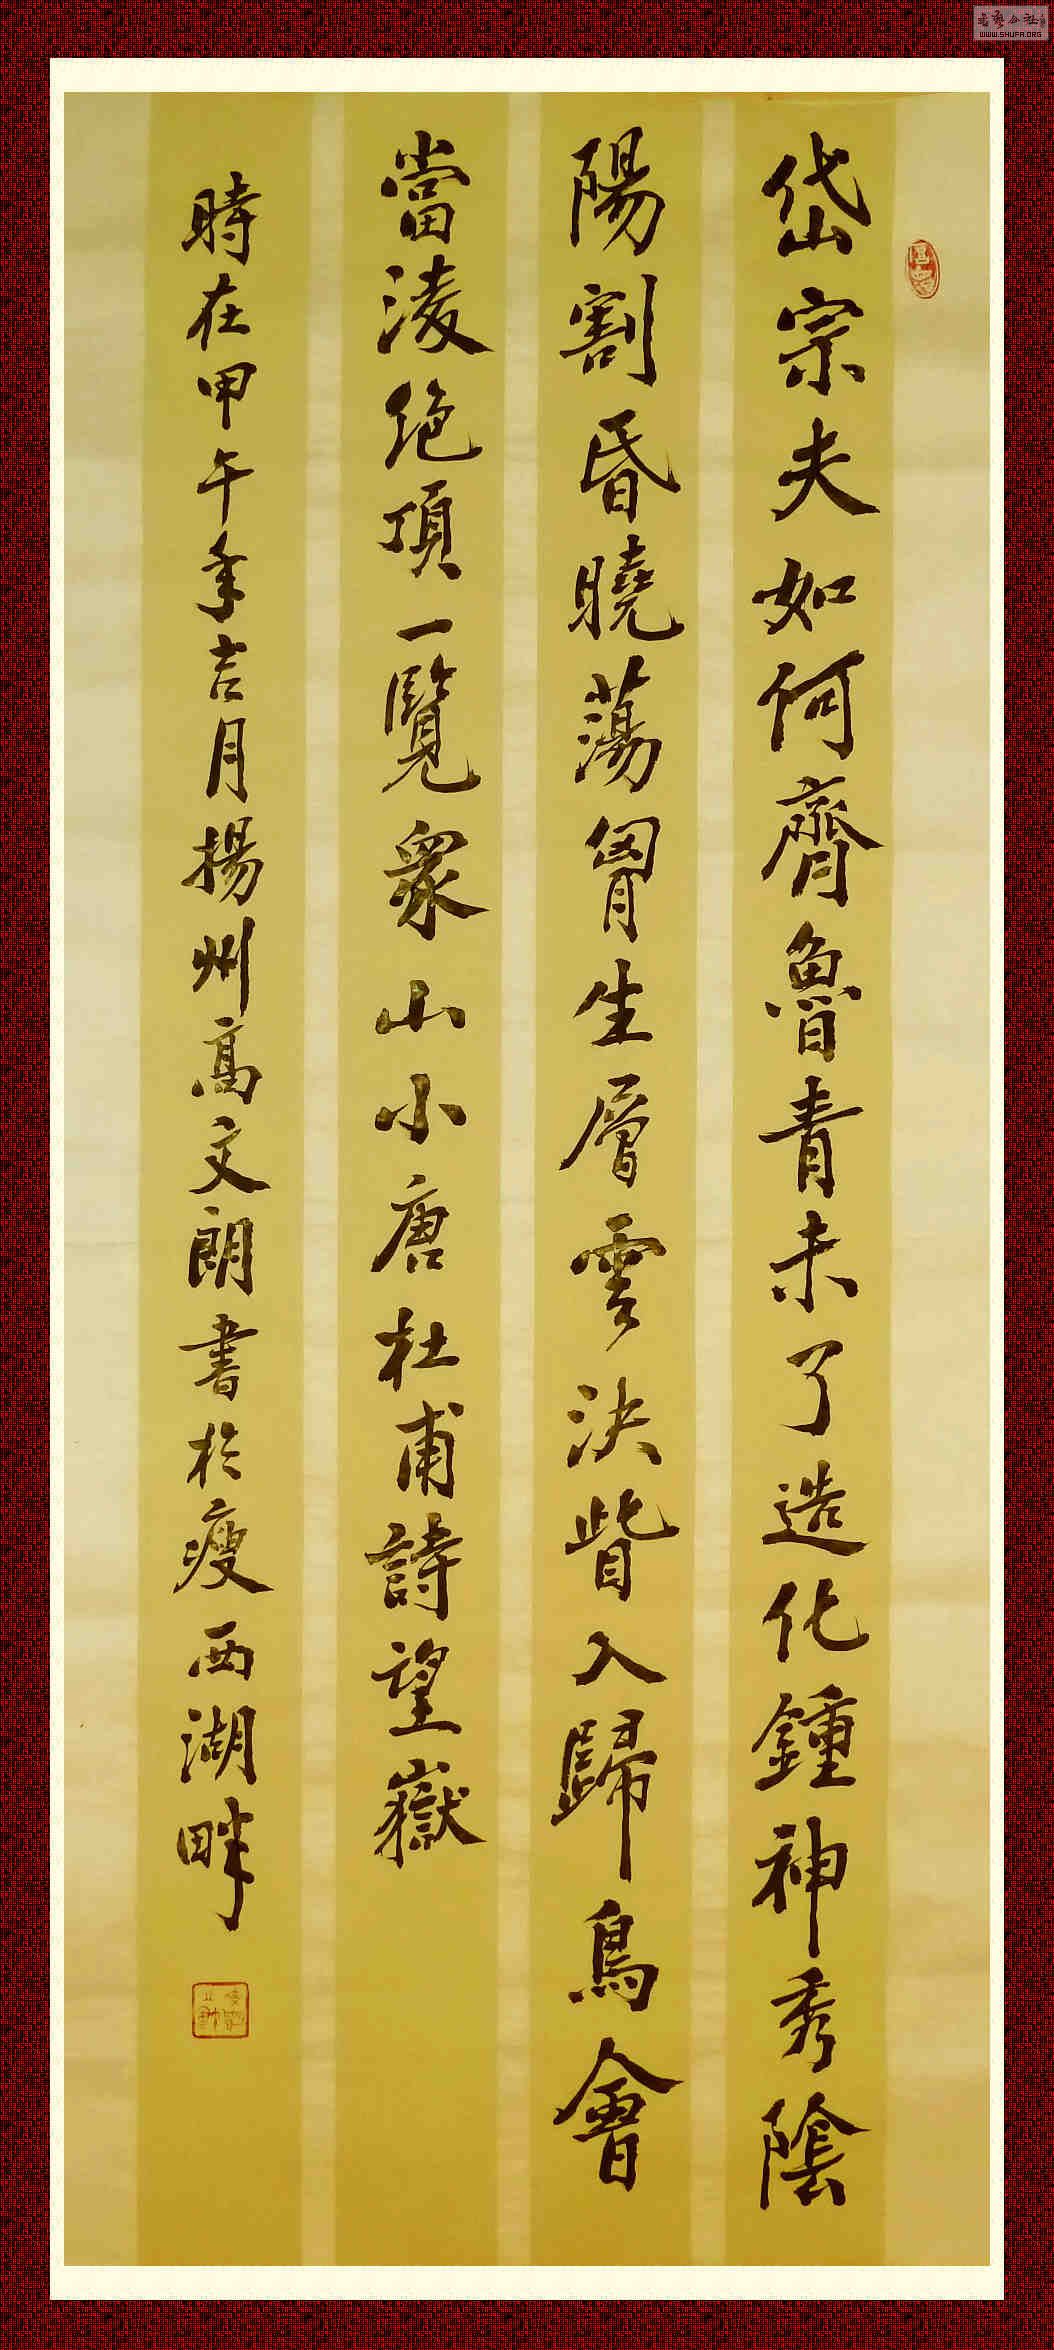 岱宗夫如何齊魯青未了造化鍾神秀陰
陽割昏曉蕩胷生層雲決眥入歸鳥會
當淩绝項一覽衆山小唐杜甫詩望嶽
時在甲午年吉月揚州高文朗書於瘦西湖畔
WWW.SHUFA.ORG